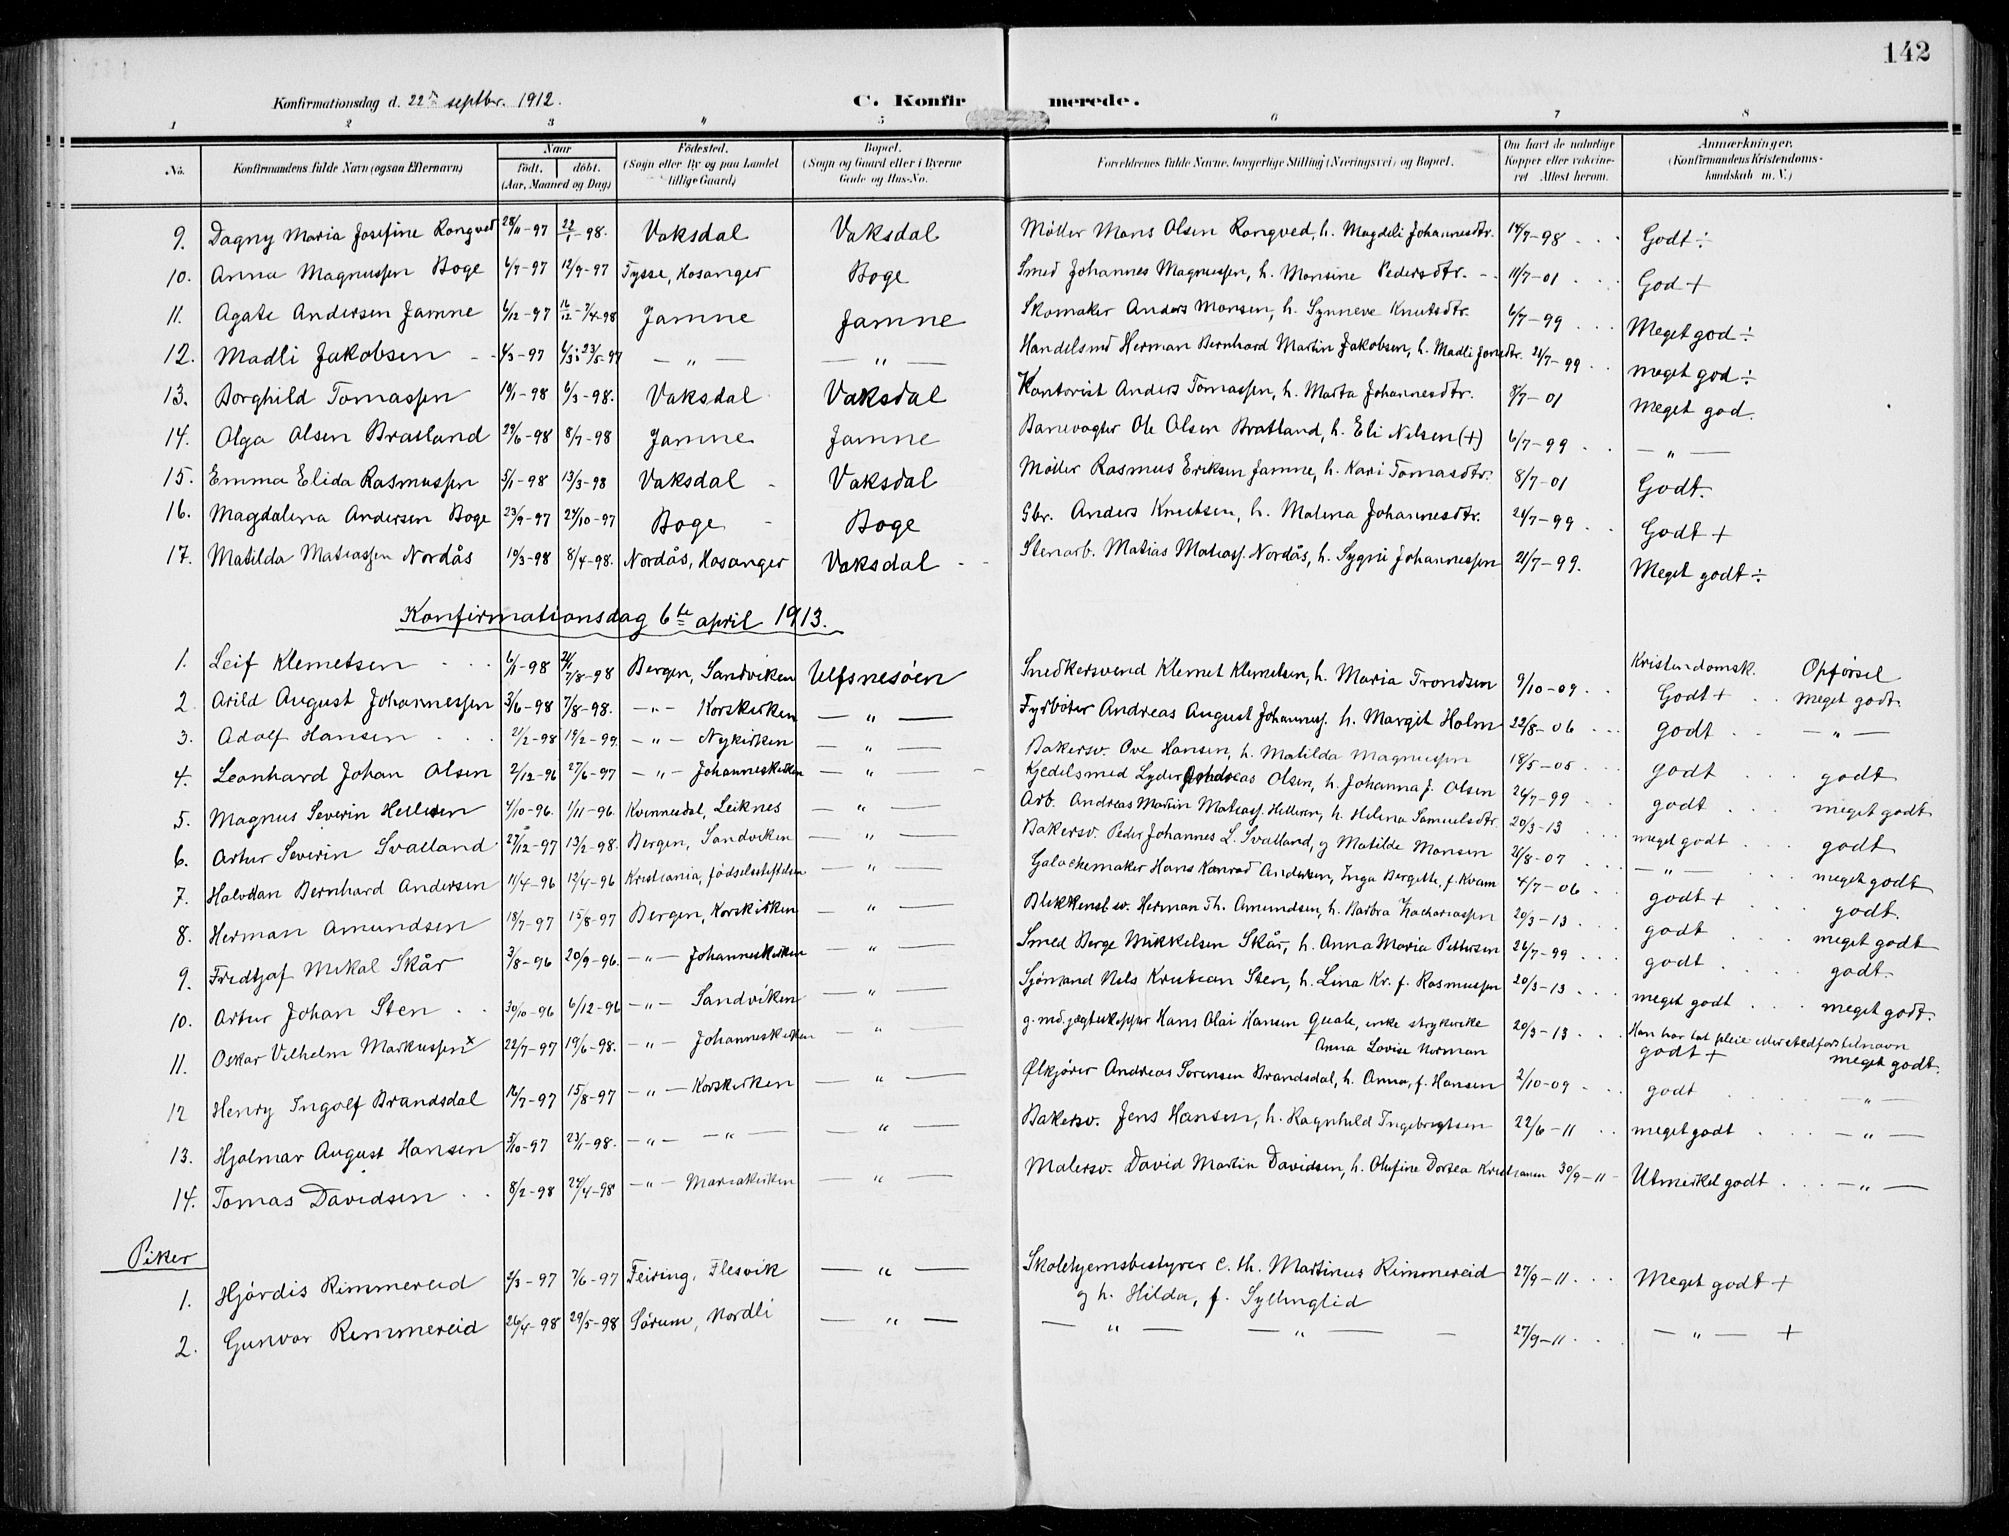 142
Konfirmationsdag d. 22de septbr. 1912. C. Konfirmerede.
1 2 3 " 5 6 7 8
No. Konfirmandens fulde Navn (ogsaa Efternavn) Naar födt. döbt. (Aar, Maaned og Dag) Födested. (Sogn eller By og paa Landet tillige Gaard) Bopæl. (Sogn og Gaard eller i Byerne Gade og Hus-No. Forældrenes fulde Navne, borgerlige Stilling (Næringsvei) og Bopæl. Om havt de naturlige Kopper eller vakcineret Attest herom. Anmærkninger. (Konfirmandens Kristendomskundskab m. V.)
9. Dagny Maria Josefine Rongved 28/11-97 22/1-98. Vaksdal Vaksdal Møller Mons Olsen Rongved, h. Magdeli Johannesdtr. 14/7-98 Godt ÷
10. Anna Magnussen Boge 6/7-97 12/9-97 Tysse, Hosanger Boge Smed Johannes Magnussen, h. Monsine Pedersdtr. 11/7-01 God +
11. Agate Andersen Jamne 6/12-97 16/12-7/4-98 Jamne Jamne Skomaker Anders Monsen, h. Synneve Knutsdtr. 6/7-99 Meget god ÷
12. Madli Jakobsen 4/3-97 6/3 i 23/5-97 — " — — " — Handelsmd Herman Bernhard Martin Jakobsen, h. Madli Jonsdtr. 21/7-99 meget god ÷
13. Borghild Tomassen 19/1-98 6/3-98. Vaksdal Vaksdal Kontorist Anders Tomassen, h. Marta Johannesdtr. 8/7-01 Meget god
14. Olga Olsen Bratland 29/6-98 8/7-98 Jamne Jamne Banevogter Ole Olsen Bratland, h. Eli Nilsen (+) 6/7-99 — " —
15. Emma Elida Rasmussen 5/1-98 13/3-98 Vaksdal Vaksdal Møller Rasmus Eriksen Jamne, h. Kari Tomasdtr. 8/7-01 Godt.
16. Magdalena Andersen Boge 23/9-97 24/10-97 Boge Boge Gbr. Anders Knutsen, h. Malena Johannesdtr. 24/7-99 Godt +
17. Matilda Matiassen Nordås 19/3-98 8/4-98. Nordås, Hosanger Vaksdal Stenarb. Matias Matiass. Nordås, h. Sygni Johannessen 21/7-99. Meget godt ÷
Konfirmationsdag 6te april 1913.
Kristendomsk. Opførsel
1. Leif Klemetsen 6/1-98 7/8-98 Bergen, Sandviken Ulfsnesøen Snedkersvend Klemet Klemetsen, h. Maria Trondsen 9/10-09 Godt + meget godt.
2 Arild August Johannessen 3/6-98 7/8-98. — " — Korskirken — " — Fyrbøter Andreas August Johanness. h. Margit Holm 22/8-06 godt — " —
3. Adolf Hansen 2/2-98 19/2-99. — " — Nykirken — " — Bakersv. Ove Hansen, h. Matilda Magnussen 18/5-05 godt godt
4. Leonhard Johan Olsen 2/12-96 27/6-97 — " — Johanneskirken — " — Kjedelsmed Lyder Andreas Olsen, h. Johanna J. Olsen 26/7-99 godt meget godt
5. Magnus Severin Helleren 4/10-96. 1/11-96. Kvinnesdal, Leiknes — " — Arb. Andreas Martin Matiass. Helleren, h. Helena Samuelsdtr. 20/3-13 meget godt godt
6. Artur Severin Svatland 27/12-97 13/2-98. Bergen, Sandviken — " — Bakersv. Peder Johannes L. Svatland, og Matilde Monsen 21/8-07 — " — meget godt
7. Halvdan Bernhard Andersen 11/4-96 12/4-96 Kristiania, fødselsstiftelsen — " — Galochemaker Hans Konrad Andersen, Inga Bergitte, f. Kvam 4/7-06 godt + godt.
8. Herman Amundsen 18/7-97 15/8-97 Bergen, Korskirken — " — Blikkensl. sv. Herman Th. Amundsen, h. Barbra Zachariassen 20/3-13 godt meget godt
9. Fredtjof Mikal Skår 3/8-96 20/9-96. — " — Johanneskirken — " — Smed Berge Mikkelsen Skår, h. Anna Maria Pettersen 26/7-99 godt godt
10. Artur Johan Sten 30/10-96 6/12-96 — " — Sandviken — " — Sjømand Nils Kristian Sten, h. Lina Kr. f. Rasmussen 20/3-13 meget godt meget godt.
11. Oskar Vilhelm Markussen x 22/7-97 19/6-98. — " — Johanneskirken — " — g. md. jægteskipper Hans Olai Hansen Quale, enke strykerske 20/3-13 Han har tat pleie eller stedfars tilnavn
Anna Lovise Norman godt + meget godt.
12 Henry Ingolf Brandsdal 16/7-97 15/8-97 — " — Korskirken — " — Ølkjører Andreas Sørensen Brandsdal, h. Anna, f. Hansen 2/10-09 godt — " —
13. Hjalmar August Hansen 5/10-97 23/1-98. — " — — " — — " — Bakersv. Jens Hansen, h. Ragnhild Ingebrigtsen 22/6-11 meget godt — " —
14. Tomas Davidsen 8/2-98 24/4-98 — " — Mariakirken — " — Malersv. David Martin Davidsen, h. Olufine Dortea Kristiansen 30/9-11 Utmerket godt — " —
Piker
1. Hjørdis Rimmereid 2/3-97 7/6-97 Feiring, Flesvik — " — Skolehjemsbestyrer c. th. Martinus Rimmereid 27/9-11 Meget godt +
og h. Hilda, f. Syllinglid
2. Gunvor Rimmereid 26/4-98 29/5-98 Sørum, Nordli — " — — " — — " — 27/9-11 — " — +